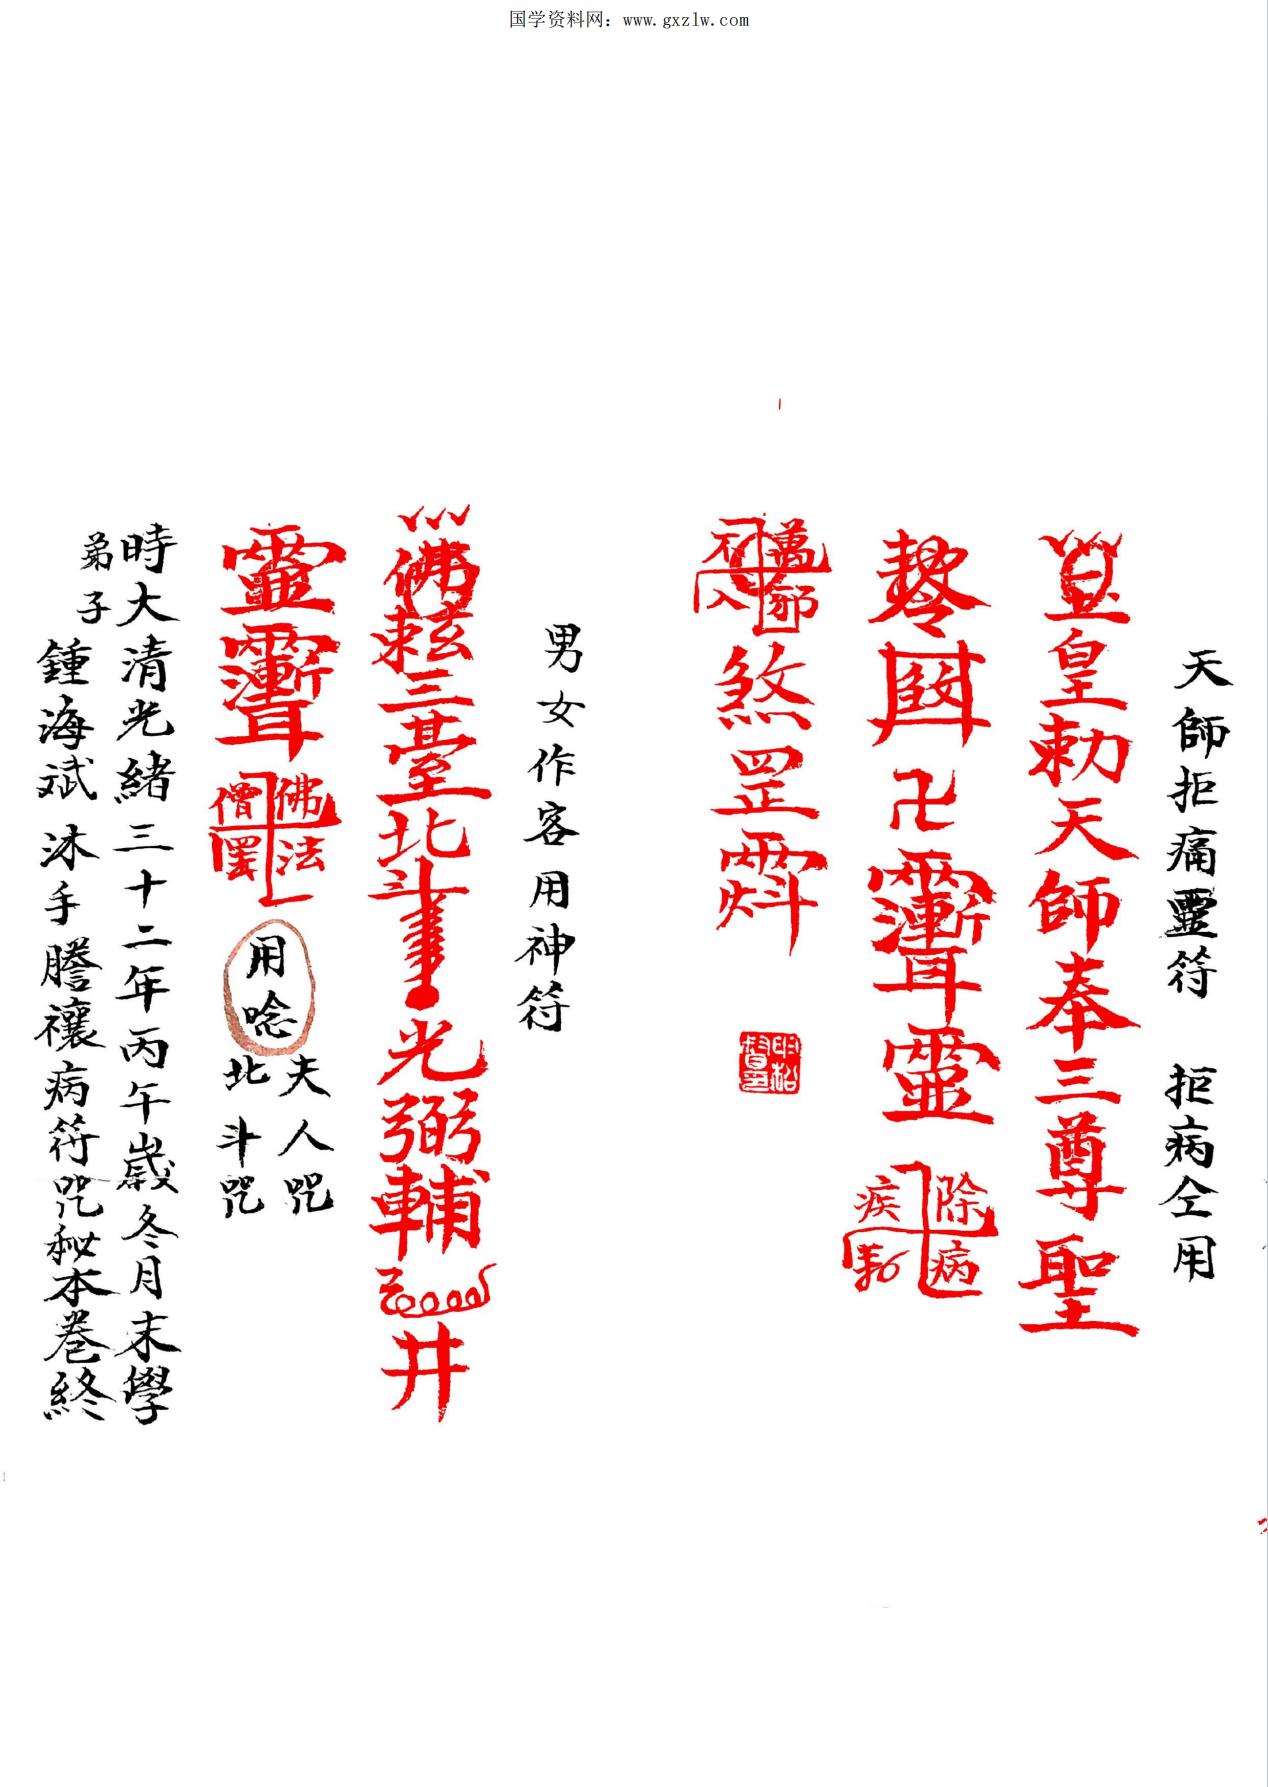 国学资料网：www.gxzlw.com
天師拒痛靈符 拒病仝用
皇勅天師奉三尊聖
卍
靈
除病
疾
萬邪
不入
煞罡
男女作客用神符
佛
三臺北斗
光弼輔
井
靈
佛法
僧
用唸
夫人咒
北斗咒
時大清光緒三十二年丙午歲冬月末學
弟子
鍾海斌沐手謄禳病符咒秘本卷終